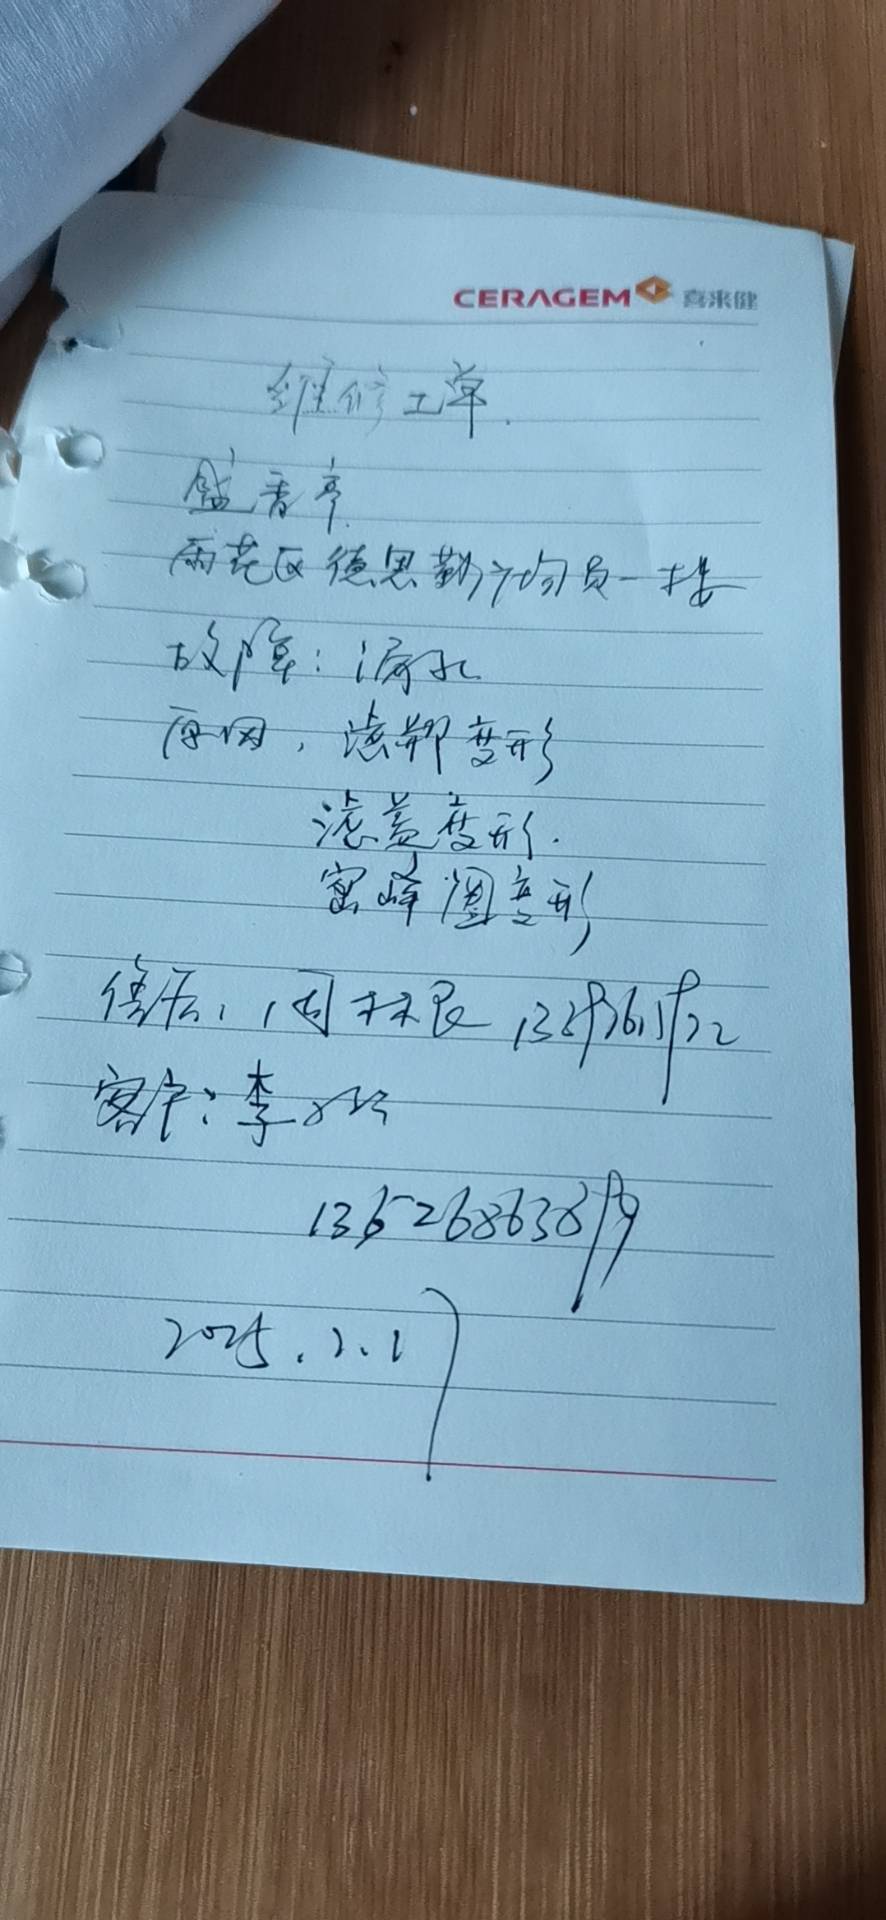 CERAGEM 喜来健
维修工单.
盛香亭.
雨花区德思勤广场负一楼
故障:漏水
原因,滤塑变形
滤盖变形.
密峰圈变形
售后:周林良
客户:李
13526863899
2025.2.17